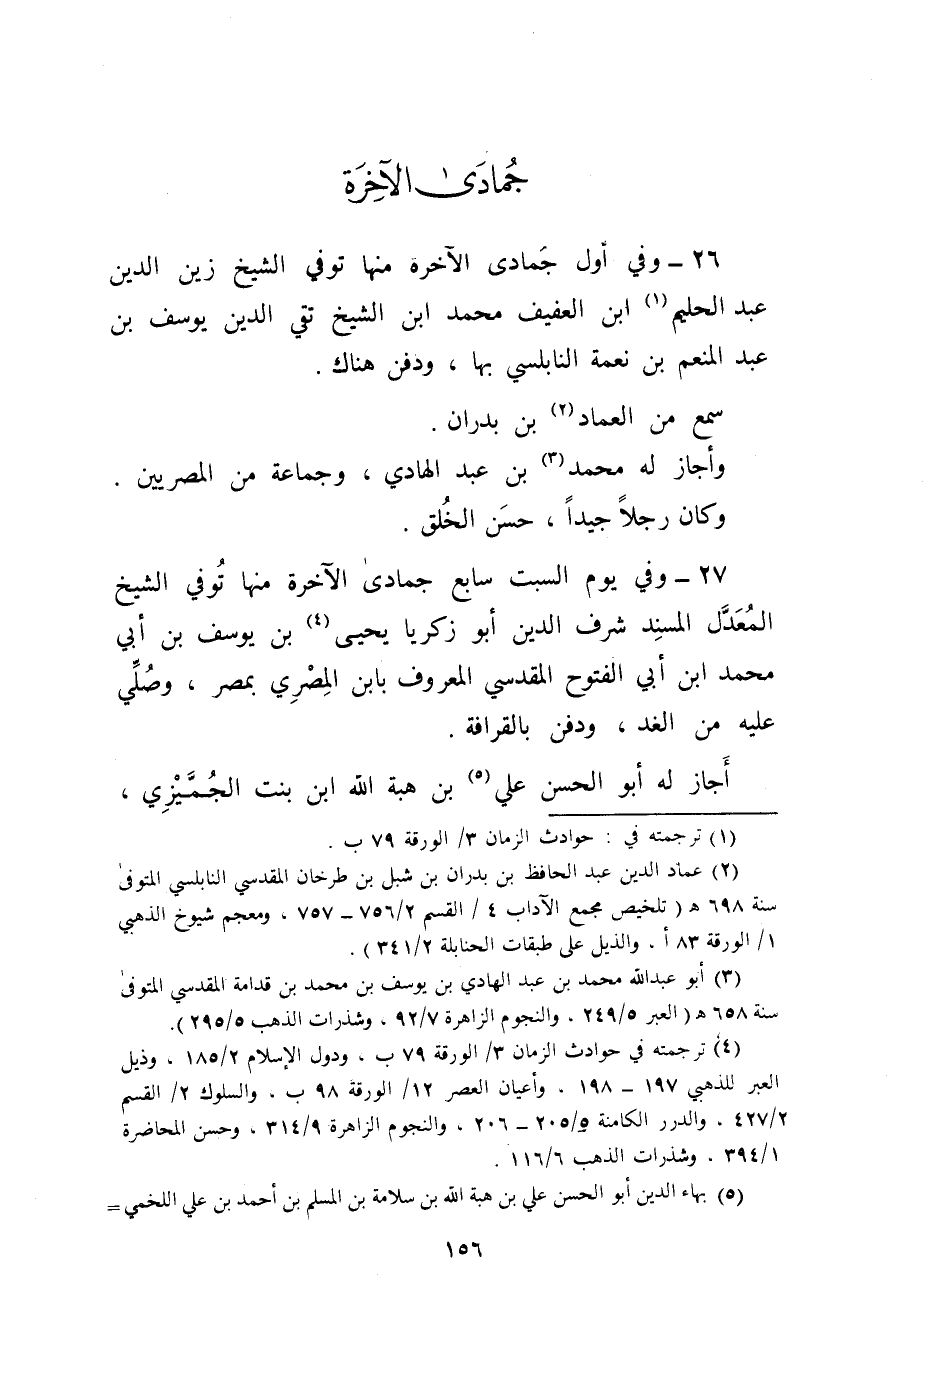 جُمادَىٰ الآخِرَة
٢٦ ـ وفي أول جَمادى الآخرة منها توفي الشيخ زين الدين
عبد الحليم(١) ابن العفيف محمد ابن الشيخ تقي الدين يوسف بن
عبد المنعم بن نعمة النابلسي بها ، ودفن هناك .
سمع من العماد(٢) بن بدران .
وأجاز له محمد(٣) بن عبد الهادي ، وجماعة من المصريين .
وكان رجلاً جيداً ، حسَن الخُلق .
٢٧ ـ وفي يوم السبت سابع جمادىٰ الآخرة منها تُوفي الشيخ
المُعَدَّل المسنِد شرف الدين أبو زكريا يحيى(٤) بن يوسف بن أبي
محمد ابن أبي الفتوح المقدسي المعروف بابن المِصْرِي بمصر ، وصُلِّي
عليه من الغد ، ودفن بالقرافة .
أَجاز له أبو الحسن علي(٥) بن هبة الله ابن بنت الجُمَّيْزِي ،
(١) ترجمته في : حوادث الزمان ٣/ الورقة ٧٩ ب .
(٢) عماد الدين عبد الحافظ بن بدران بن شبل بن طرخان المقدسي النابلسي المتوفىٰ
سنة ٦٩٨ هـ ( تلخيص مجمع الآداب ٤ / القسم ٧٥٦/٢ ـ ٧٥٧ ، ومعجم شيوخ الذهبي
١/ الورقة ٨٣ أ . والذيل على طبقات الحنابلة ٣٤١/٢ ) .
(٣) أبو عبدالله محمد بن عبد الهادي بن يوسف بن محمد بن قدامة المقدسي المتوفىٰ
سنة ٦٥٨ هـ ( العبر ٢٤٩/٥ ، والنجوم الزاهرة ٩٢/٧ ، وشذرات الذهب ٢٩٥/٥ ).
(٤) ترجمته في حوادث الزمان ٣/ الورقة ٧٩ ب ، ودول الإسلام ١٨٥/٢ ، وذيل
العبر للذهبي ١٩٧ ـ ١٩٨ ، وأعيان العصر ١٢/ الورقة ٩٨ ب ، والسلوك ٢/ القسم
٤٢٧/٢ ، والدرر الكامنة ٢٠٥/٥ ـ ٢٠٦ ، والنجوم الزاهرة ٣١٤/٩ ، وحسن المحاضرة
٣٩٤/١ . وشذرات الذهب ١١٦/٦ .
(٥) بهاء الدين أبو الحسن علي بن هبة الله بن سلامة بن المسلم بن أحمد بن علي اللخمي =
١٥٦